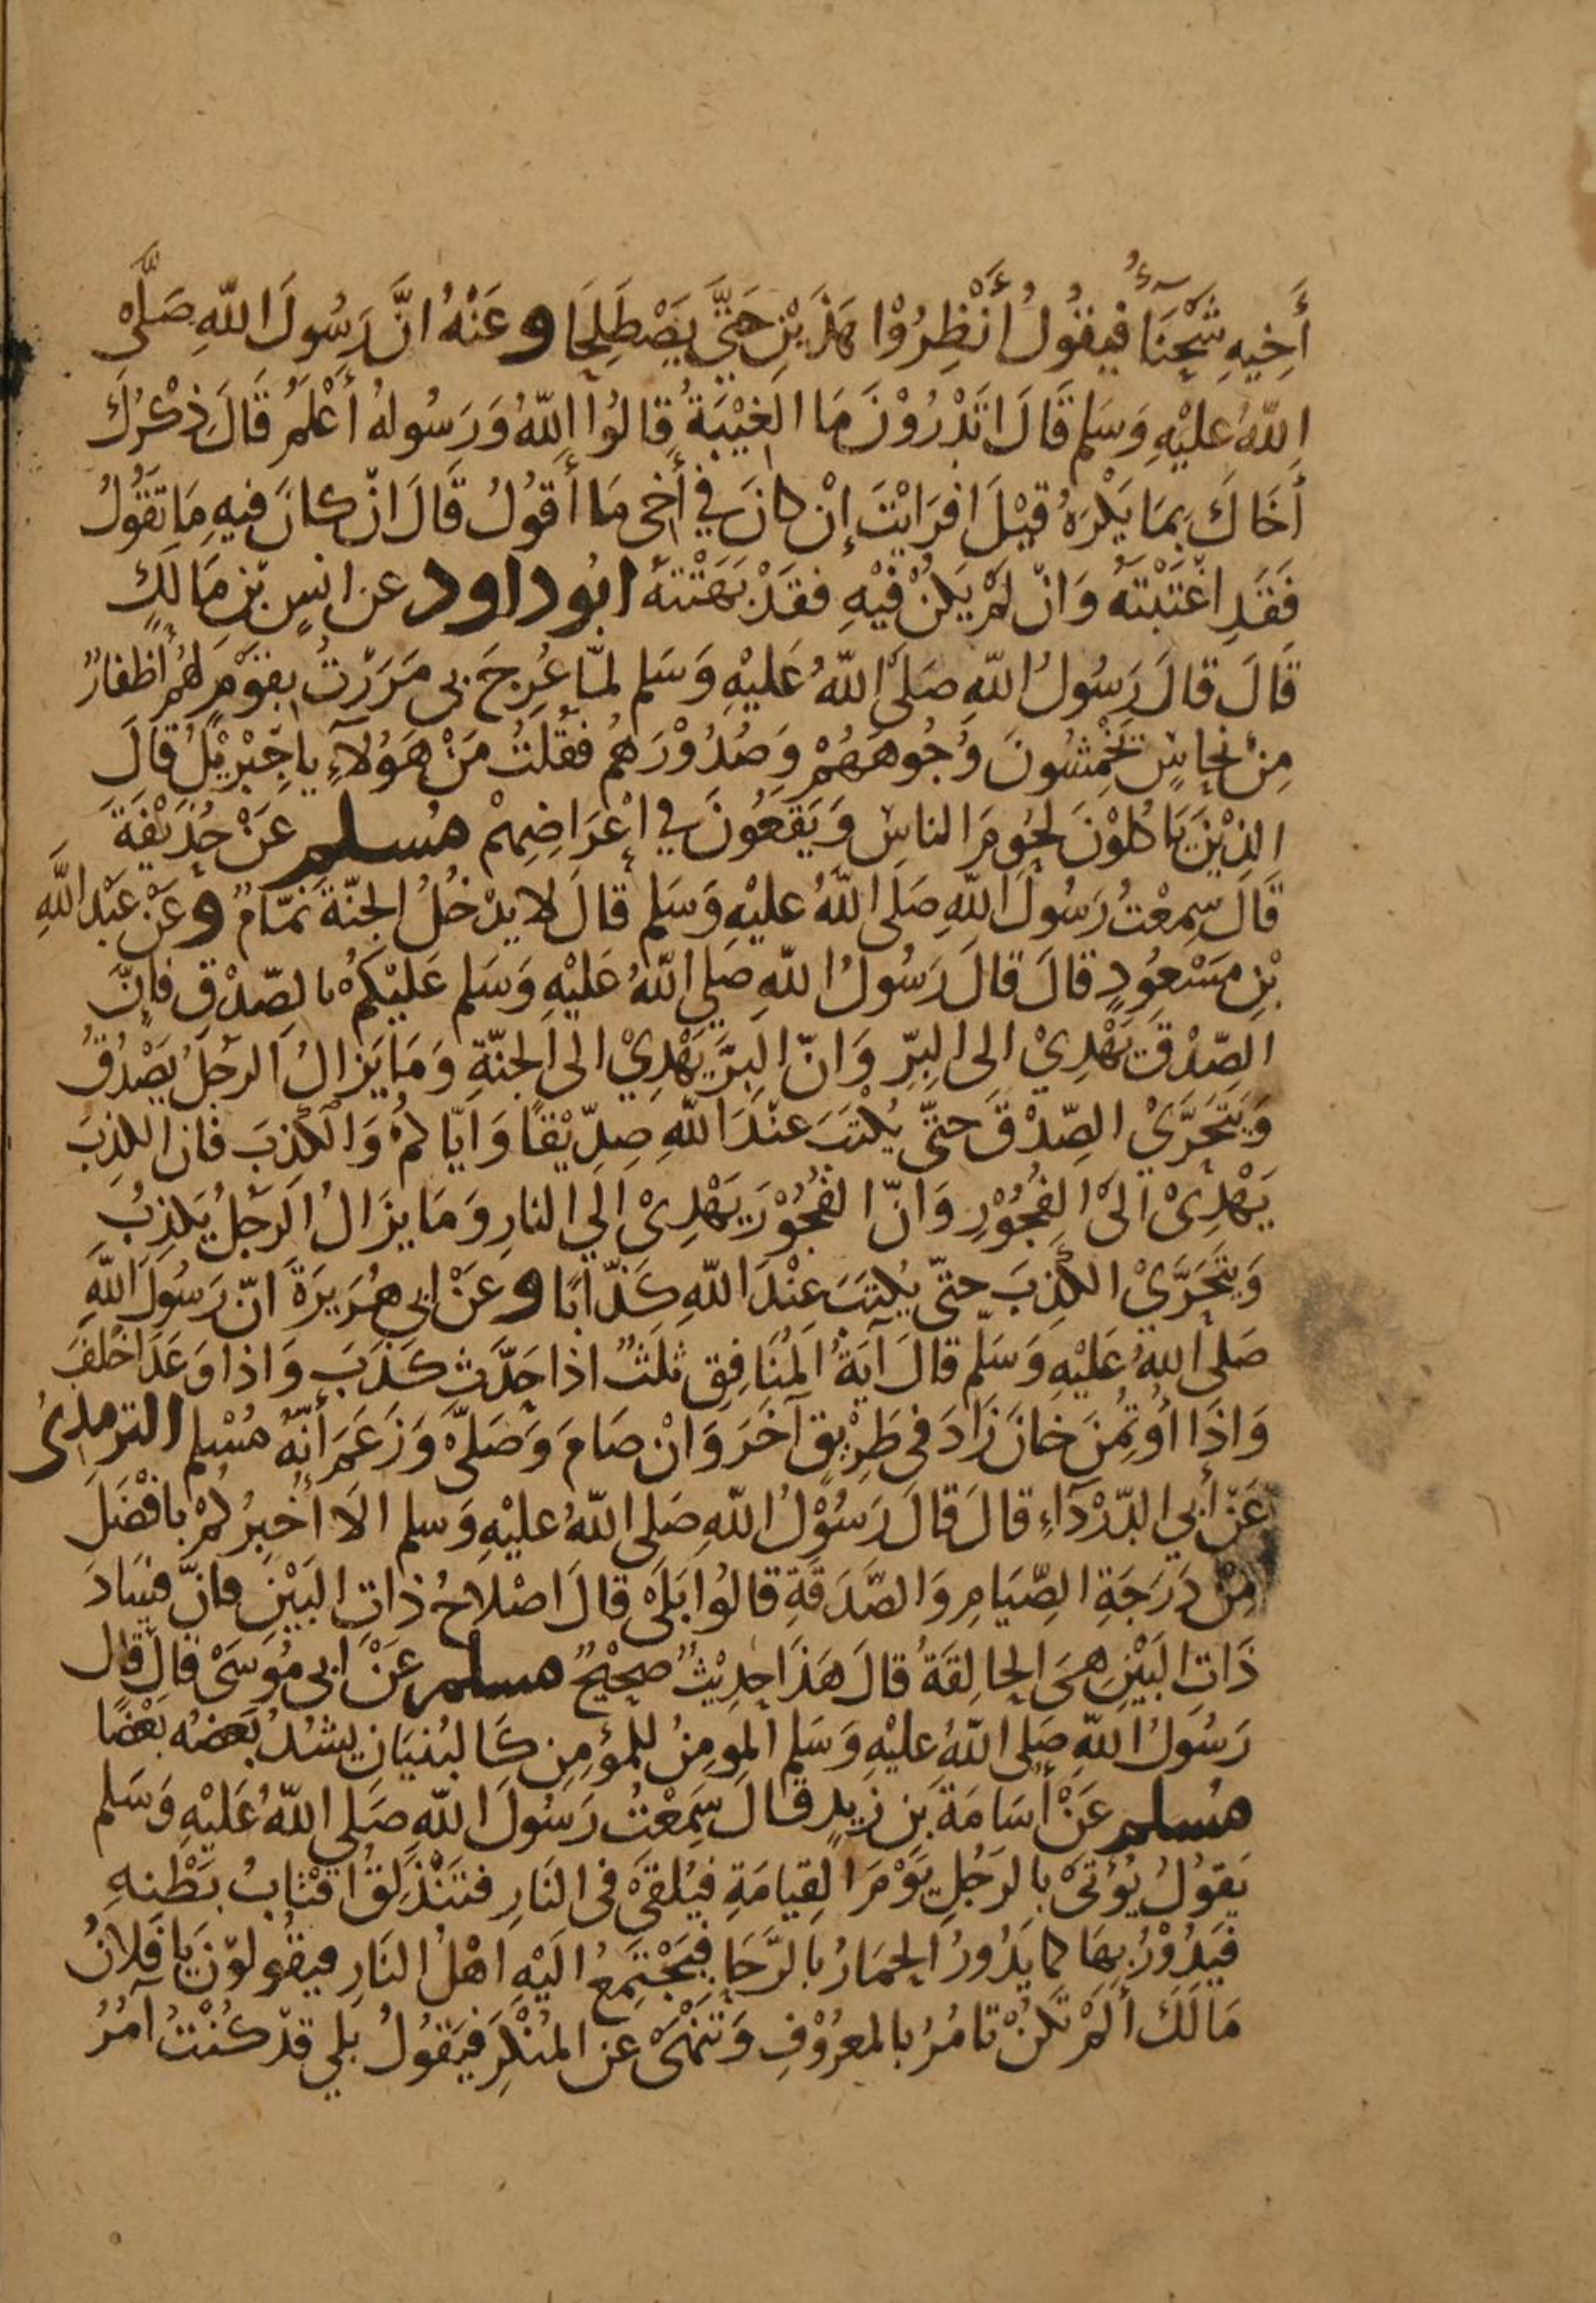 أَخِيهِ شَحْنَآءُ فَيقُولُ أَنْظِرُوْا هَذَيْنِ حَتَّى يَصْطَلِحَا وعَنْهُ انَّ رَسُولَ اللّهِ صَلَّى
اللّهُ عليْهِ وَسَلم قَالَ اتَدْرُوْنَ مَا الغِيْبَةُ قالُوا اللّهُ وَرَسُولهُ أَعْلمُ قَالَ ذِكْرُكَ
أَخَاكَ بِمَا يَكْرَهُ قيْلَ افرَايْتَ إِنْ كانَ في أَخى مَا أَقوُلُ قَالَ انْ كانَ فيهِ مَا تَقُولُ
فَقَدِ اغْتَبْتَهُ وَانْ لمْ يَكُنْ فيْهِ فقَدْ بَهَتْتَهُ ابُو داود عن انسٍ بْنِ مَالكٍ
قَالَ قالَ رَسُولُ اللّهِ صَلى اللّهُ عَليْهِ وَسَلم لمّا عُرِجَ بى مَرَرْتُ بقَوْمٍ لهُم أظفارٌ
مِنْ نُحاسٍ تَخْمِشُونَ وُجُوهَهُمْ وَصُدُوْرَهمُ فقُلتُ مَنْ هَؤُلآءِ يا جِبْريْلُ قَالَ
الذِيْنَ يَا كلوْنَ لحُومَ الناسِ وَيَقَعُونَ في اعْرَاضِهِمْ مُسلم عَنْ حُذَيْفَةَ
قَالَ سِمعْتُ رَسُولَ اللّهِ صَلى اللّهُ عليْهِ وَسَلم قالَ لا يدْخُلُ الجنّةَ نمّامٌ وعَنْ عَبْد اللَّهِ
بْنِ مَسْعوُدٍ قالَ قالَ رَسُولُ اللّهِ صَلي اللّهُ عَليْهِ وَسَلم عَليْكمُ بالصّدْقِ فإنَّ
الصّدْقَ يَهْدِيْ الى البِرِّ وَانّ البِرَّ يَهْدِيْ الى الجنّةِ وَمَا يَزالُ الرجُلُ يَصْدُقُ
وَيَتَحَرَّيْ الصِّدْقَ حتّى يُكْتَبَ عنْدَ اللّهِ صِدّيْقًا وَايّا كمُ وَالكذِبَ فان الكذِبَ
يَهْدِىْ الَى الفُجُوْرِ وَانّ الفُجُوْرَ يَهْدِىْ الَي النارِ وَمَا يزَالُ الرجُلُ يَكذِبُ
وَيتَحَرَّىْ الكذِبَ حتّى يُكتَبَ عِنْدَ اللّهِ كَذّابًا وعَنْ ابى هُرَيرَةَ انّ رَسُولَ اللّهِ
صَلى اللهُ عَليْهِ وَسَلّم قالَ آيَةُ المنَافِقِ ثلَثٌ اذا حَدّثَ كَذَبَ وَاذا وَعَدَ اخْلفَ
وَاذَا اوُتُمِنَ خانَ زَادَ فى طَرِيْقٍ آخَرَ وَانْ صَامَ وَصَلَّى وَزَعَمَ أَنّهُ مُسْلم الترمذِىُ
عَنْ أَبي الدّرْدَآءِ قالَ قالَ رَسُوْلُ اللّهِ صَلى اللّهُ عليْهِ وَسلم الَا أُخبرُكمْ بافْضَلَ
مِنْ دَرَجَةِ الصِّيَامِ وَالصَّدَقَةِ قالُوا بَلَى قالَ اصْلَاحُ ذاتِ البَيْنِ فانّ فسَادَ
ذَاتِ البَيْنِ هىَ الحالِقَةُ قالَ هَذَا حدِيْثٌ صحِيْحٌ مسلم عَنْ ابى مُوسَىْ قالَ قال
رَسُولُ اللّهِ صَلى اللّهُ عليْهِ وَسَلم المؤمِنُ للمؤمِنِ كَالبُنيَانِ يشُدُ بَعضُه بَعْضًا
مُسلم عَنْ أُسَامَةَ بنِ زيدٍ قالَ سَمِعْتُ رَسُولَ اللّهِ صَلى اللّهُ عَليْهِ وَسَلم
يَقوُلُ يُؤتَىْ بالرَجُلِ يَوْمَ القِيامَةِ فيُلقَىْ فى النَارِ فتَنْذَلقُ اقتابُ بَطْنِهِ
فيَدُوْرُ بِهَا كما يَدُورُ الحِمَارُ بالرَّحَا فيَجْتَمِعُ الَيْهِ اهْلُ النَارِ فيقُولوْنَ يا فلانُ
مَالَكَ أَلمْ تكُنْ تامُرُ بالمعرُوْفِ وَتَنْهَىْ عن المُنْكرِ فيَقوُلُ بلي قدْ كُنْتُ آمُرُ